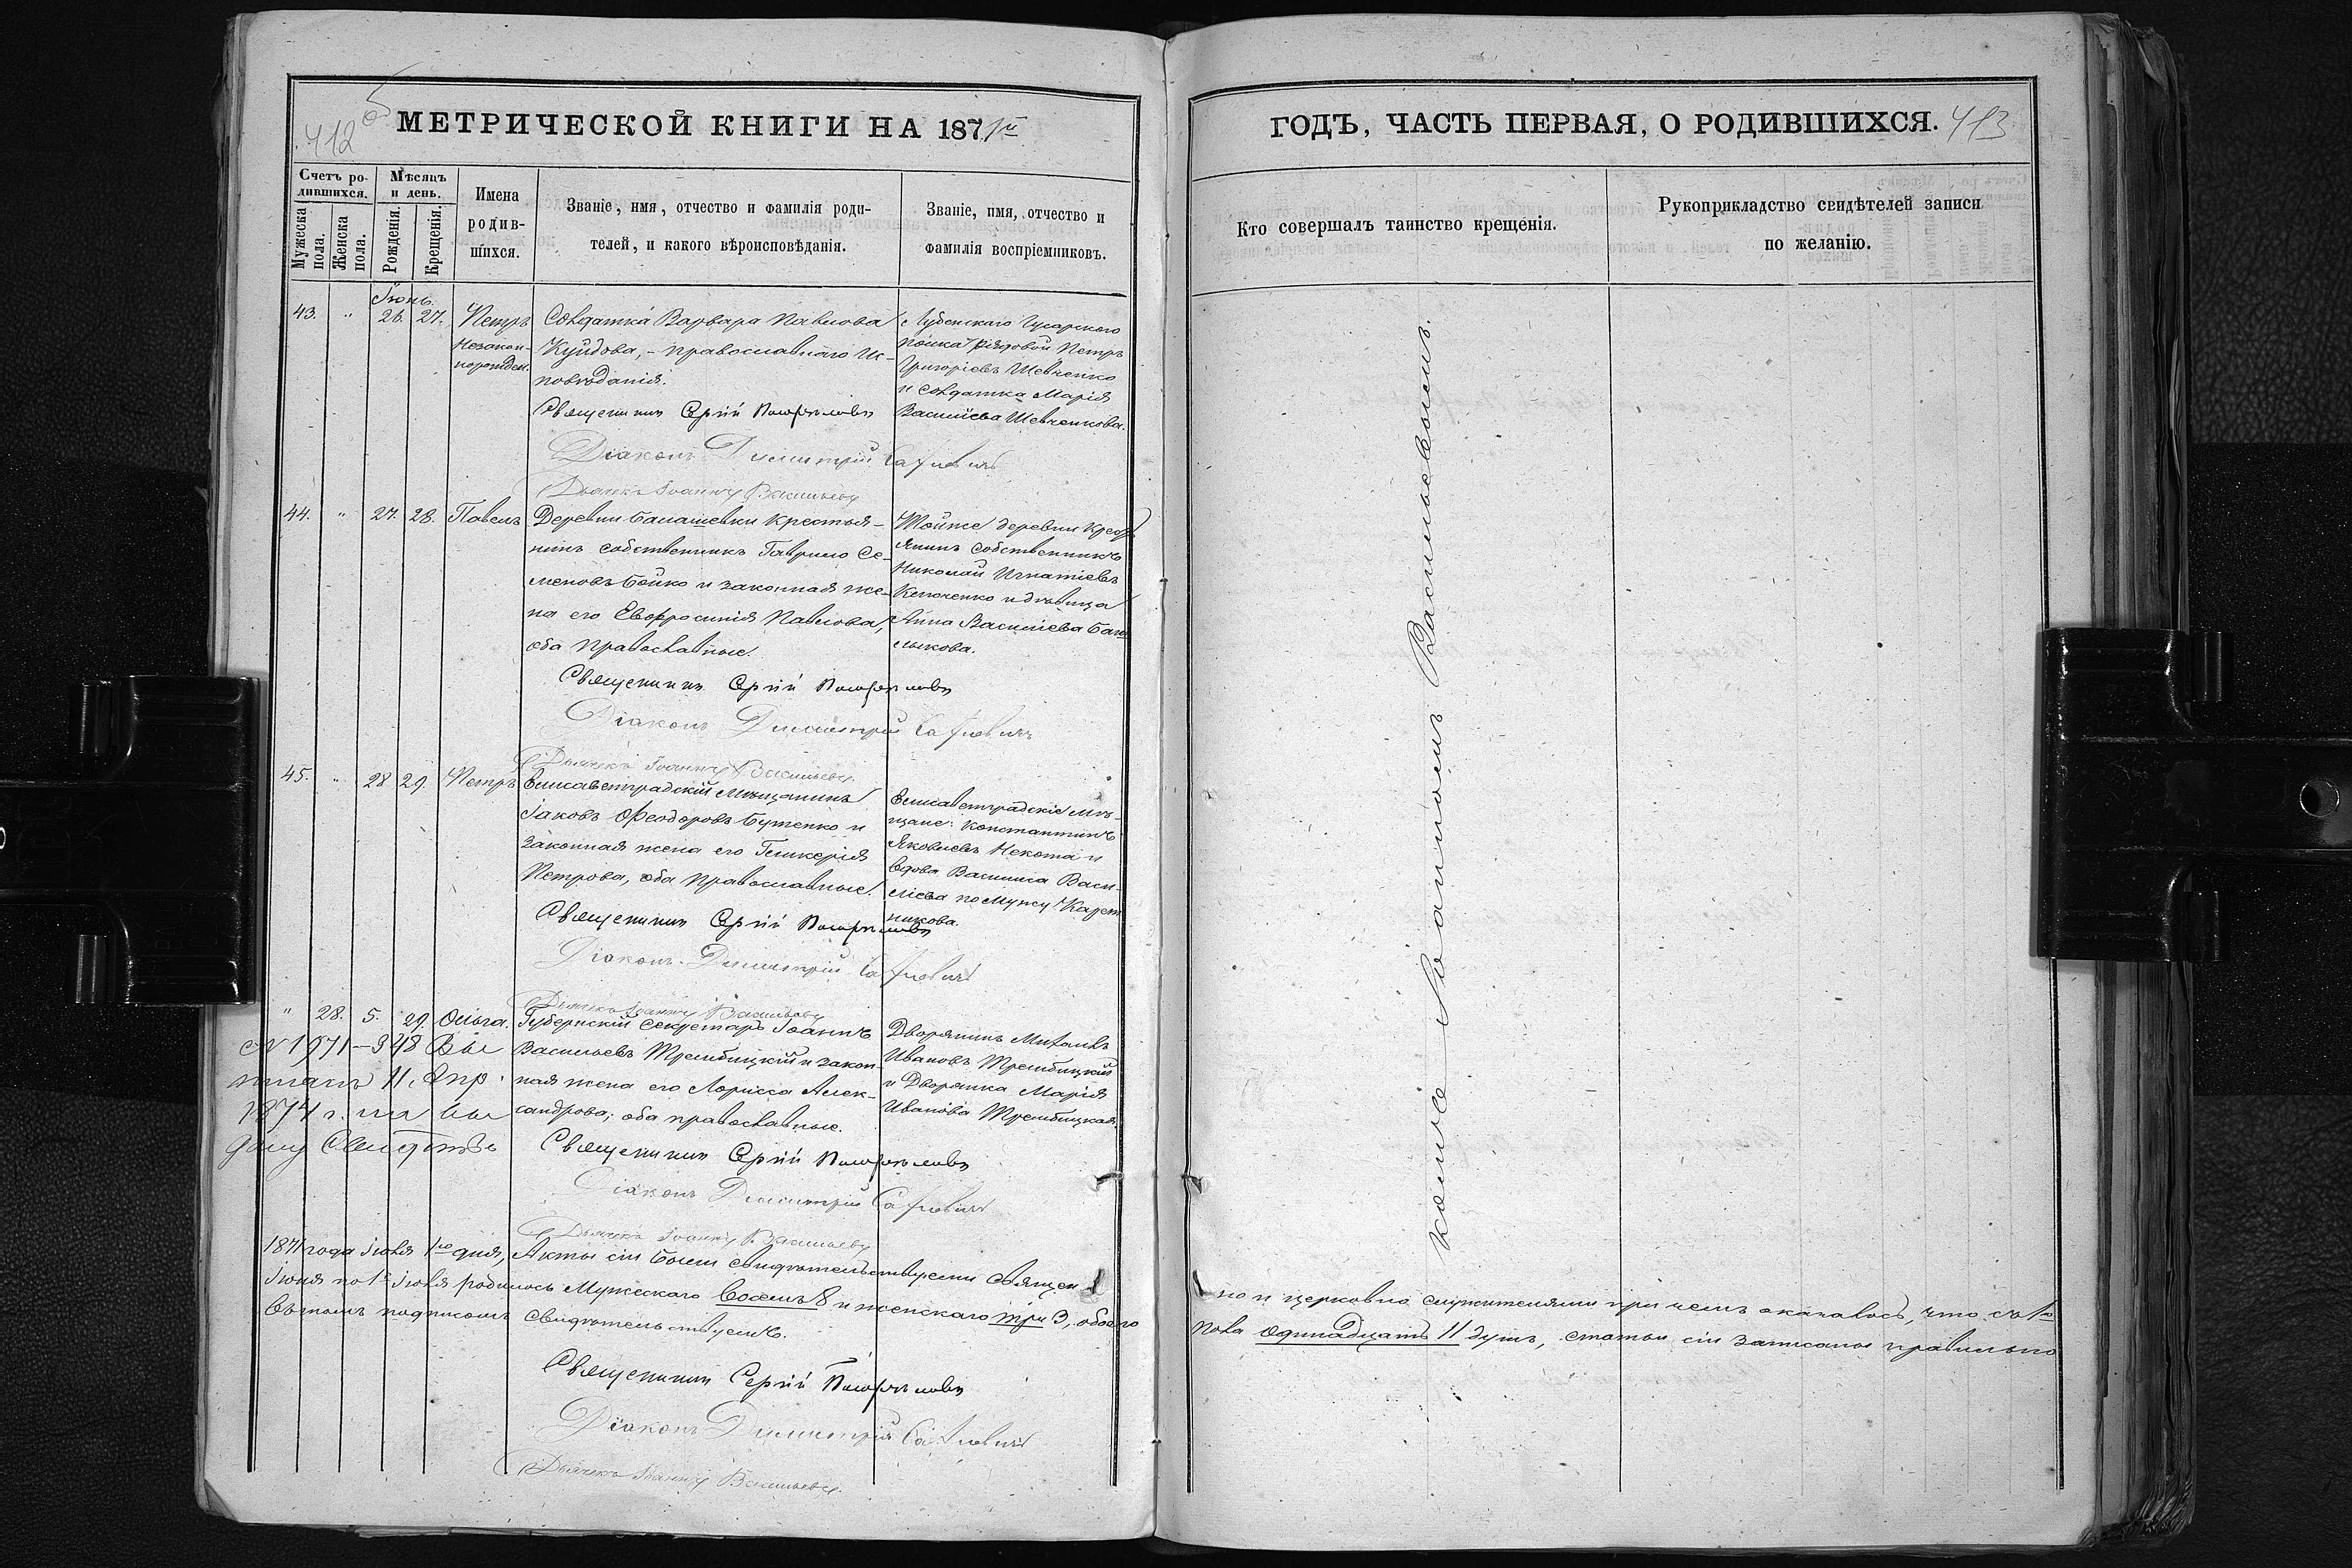 412 об
МЕТРИЧЕСКОЙ КНИГИ НА 1871й
Счетъ ро-
дившихся.
Мужеска пола.
Женска пола.
Мѣсяцъ
и день.
Рожденія.
Крещенія.
Имена
родив-
шихся.
Званіе, имя, отчество и фамилія роди-
телей, и какого вѣроисповѣданія.
Званіе, имя, отчество и
фамилія воспріемниковъ.
Іюнь.
43. " 26. 27. Петръ
Незакон-
норожден.
Солдатка Варвара Павлова
православнаго ис-
повѣданія.
Священникъ Сергій
Діаконъ Димитрій
Дьячекъ Іоаннъ Васильевъ
Лубенскаго Гусарскаго
полка рядовой Петръ
Григоріевъ Шевченко
и солдатка Марія
Василіева Шевченкова.
44. " 27. 28. Павелъ
Деревни Балашевки крестья-
нинъ собственникъ Гавріилъ Се-
меновъ Бойко и законная же-
на его Евфросинія Павлова,
оба православные.
Священникъ Сергій
Діаконъ Димитрій
Дьячекъ Іоаннъ Васильевъ
Тойже деревни крест
янинъ собственникъ
Николай Игнатіевъ
и дѣвица
Анна Василіева
45. " 28 29. Петръ
Елисаветградскій мѣщанинъ
Іаковъ Ѳеодоровъ Бутенко и
законная жена его Гликерія
Петрова, оба православные.
Священникъ Сергій
Діаконъ Димитрій
Дьячекъ Іоаннъ Васильевъ
Елисаветградскіе мѣ-
щане: Константинъ
Яковлевъ Некота и
вдова Василиса Васи-
ліева по мужу Карет
никова.
" 28. 5. 29. Ольга.
Губернскій Секретарь Іоаннъ
Васильевъ Трембицкій и закон-
ная жена его Лорисса Алек-
сандрова; оба православные.
Священникъ Сергій
Діаконъ Димитрій
Дьячекъ Іоаннъ Васильевъ
Дворянинъ Михаилъ
Ивановъ Трембицкій
и Дворянка Марія
Иванова Трембицкая.
11. Апр.
1874 г.
1871 года Іюля 1го дня, Акты сіи были свидѣтельствуеми Священ
Іюня по 1е Іюля родилось Мужескаго восемь 8 и женскаго три 3, обоего
въ томъ подписомъ свидѣтельствуемъ.
Священникъ Сергій
Діаконъ Димитрій
Дьячекъ Іоаннъ Васильевъ
ГОДЪ, ЧАСТЬ ПЕРВАЯ, О РОДИВШИХСЯ. 413
Кто совершалъ таинство крещенія.
Рукоприкладство свидѣтелей записи
по желанію.
Іоанномъ Васильевымъ.
но и церковно служителями при чемъ оказалось, что съ 1го
пола одинадцать 11 душъ, статьи сіи записаны правильно